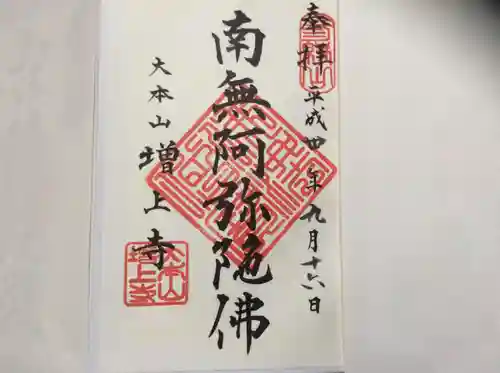 奉拝 平成四年九月十六日
南無阿弥陀佛
大本山 増上寺